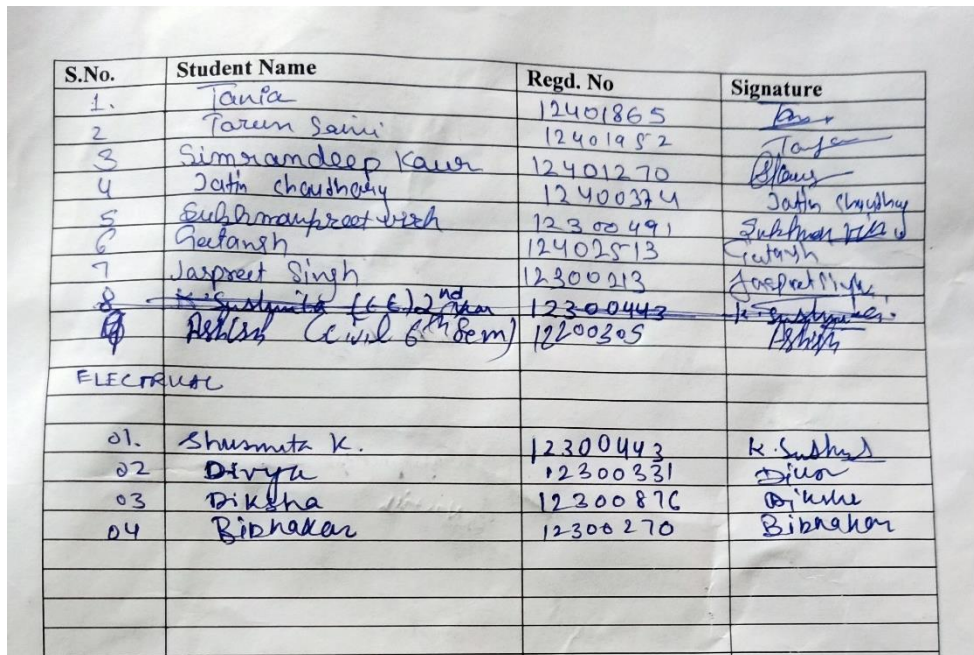 S.No. Student Name Regd. No Signature
1. Tania 12401865
2 Tarun Saini 12401952
3 Simrandeep Kaur 12401270
4 Jatin chaudhary 12400374 Jatin Chaudhary
5 Sukhmanpreet virk 12300491
6 Geetansh 12402513 Geetansh
7 Jaspreet Singh 12300213 Jaspreet Singh
8 K. Sushmita (EE) 2nd Year 12300443
Ashish (civil 6th Sem) 12200305 Ashish
ELECTRICAL
01. Shusmita K. 12300443
02 Divya 12300331
03 Diksha 12300876 Diksha
04 Bibhakar 12300270 Bibhakar